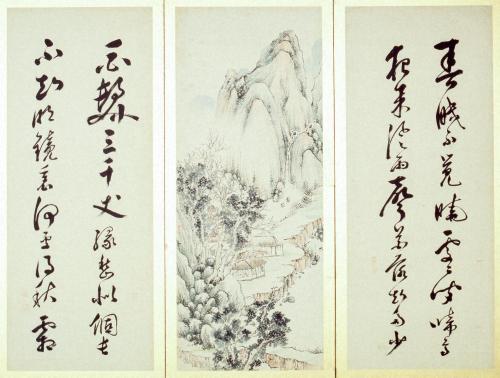 春眠不覺曉處々聞啼鳥
夜來風雨聲花落知多少
白髮三千丈緣愁似個長
不知明鏡裏何處得秋霜